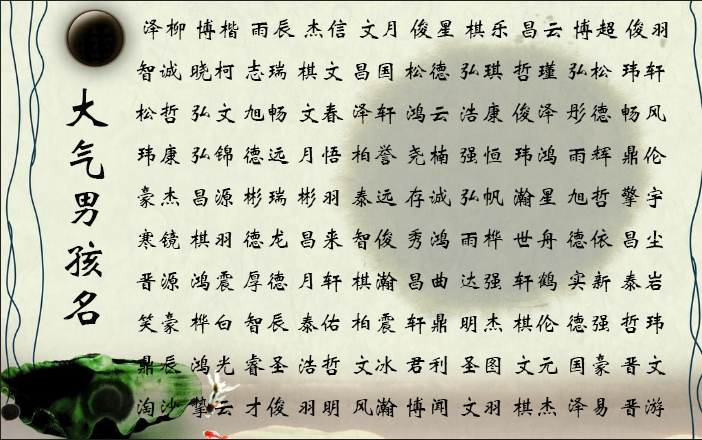 大气男孩名
泽柳 博楷 雨辰 杰信 文月 俊星 棋乐 昌云 博超 俊羽
智诚 晓柯 志瑞 棋文 昌国 松德 弘琪 哲瑾 弘松 玮轩
松哲 弘文 旭畅 文春 泽轩 鸿云 浩康 俊泽 彤德 畅风
玮康 弘锦 德远 月悟 柏誉 尧楠 强恒 玮鸿 雨辉 鼎伦
豪杰 昌源 彬瑞 彬羽 泰远 存诚 弘帆 瀚星 旭哲 擎宇
寒镜 棋羽 德龙 昌来 智俊 秀鸿 雨桦 世舟 德依 昌尘
晋源 鸿震 厚德 月轩 棋瀚 昌曲 达强 轩鹤 实新 泰岩
笑豪 桦白 智辰 泰佑 柏震 轩鼎 明杰 棋伦 德强 哲玮
鼎辰 鸿光 睿圣 浩哲 文冰 君利 圣图 文元 国豪 晋文
淘沙 挚云 才俊 羽明 风瀚 博闻 文羽 棋杰 泽易 晋游